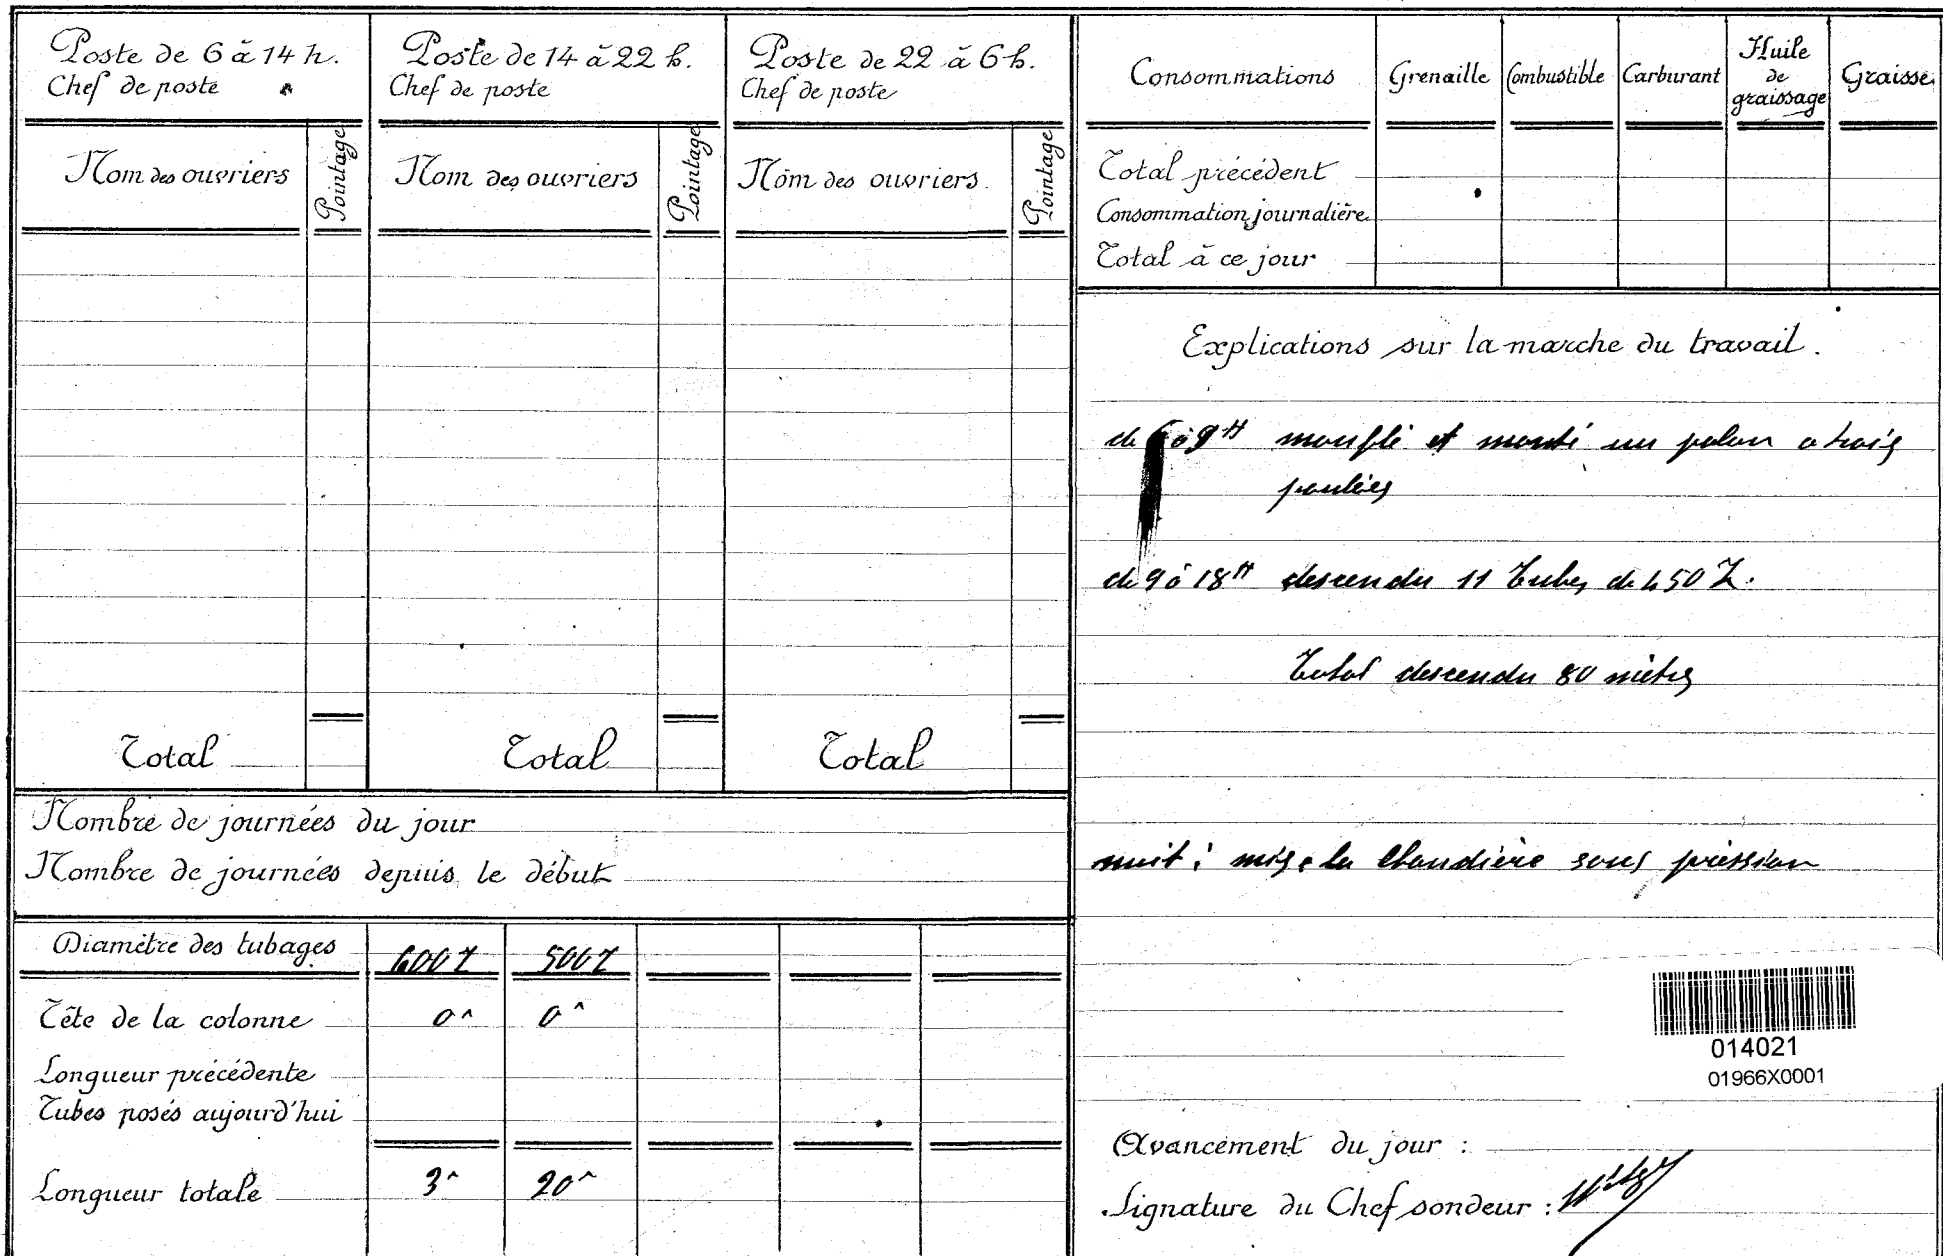 Poste de 6 à 14 h.
Chef de poste
Nom des ouvriers
Pointage
Total
Poste de 14 à 22 h.
Chef de poste
Nom des ouvriers
Pointage
Total
Poste de 22 à 6 h.
Chef de poste
Nom des ouvriers.
Pointage
Total
Nombre de journées du jour
Nombre de journées depuis le début
Diamètre des tubages 600 500
Tête de la colonne 0 0
Longueur précédente
Tubes posés aujourd'hui
Longueur totale 3 20
Consommations Grenaille Combustible Carburant Huile de graissage Graisse
Total précédent
Consommation journalière
Total à ce jour
Explications sur la marche du travail.
de à 9H mouflé et monté un palan a trois
poulies
de 9 à 18H descendu 11 Tubes de 450
Total descendu 80 mètres
nuit : mise la Chaudière sous préssion
014021
01966X0001
Avancement du jour :
Signature du Chef sondeur :